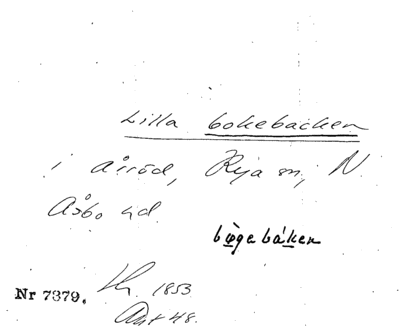 Lilla bokebacken
i Årröd, Rya sn, N.
Åsbo hd.
bögebáken
Nr 7379. 1853
Akt 48.